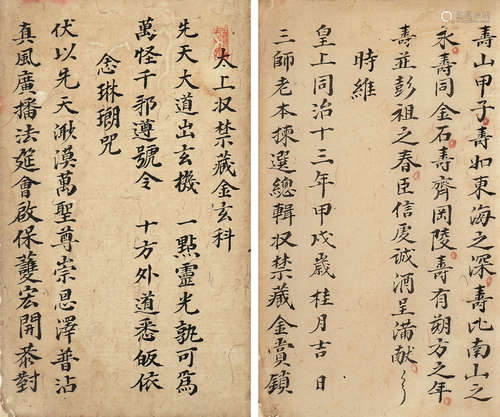 壽山甲子壽如東海之深壽比南山之
永壽同金石壽齊岡陵壽有朔方之年
壽並彭祖之春臣信虔誠酒呈滿献
時維
皇上同治十三年甲戌歲桂月吉日
三師老本揀選總輯収禁藏金賞鎖
太上収禁藏金玄科
先天大道出玄機 一點靈光孰可為
萬怪千邪遵號令 十方外道悉皈依
念琳瑯咒
伏以先天湫漠萬聖尊崇恩澤普沾
真風廣播法筵會啟保䕶宏開恭對